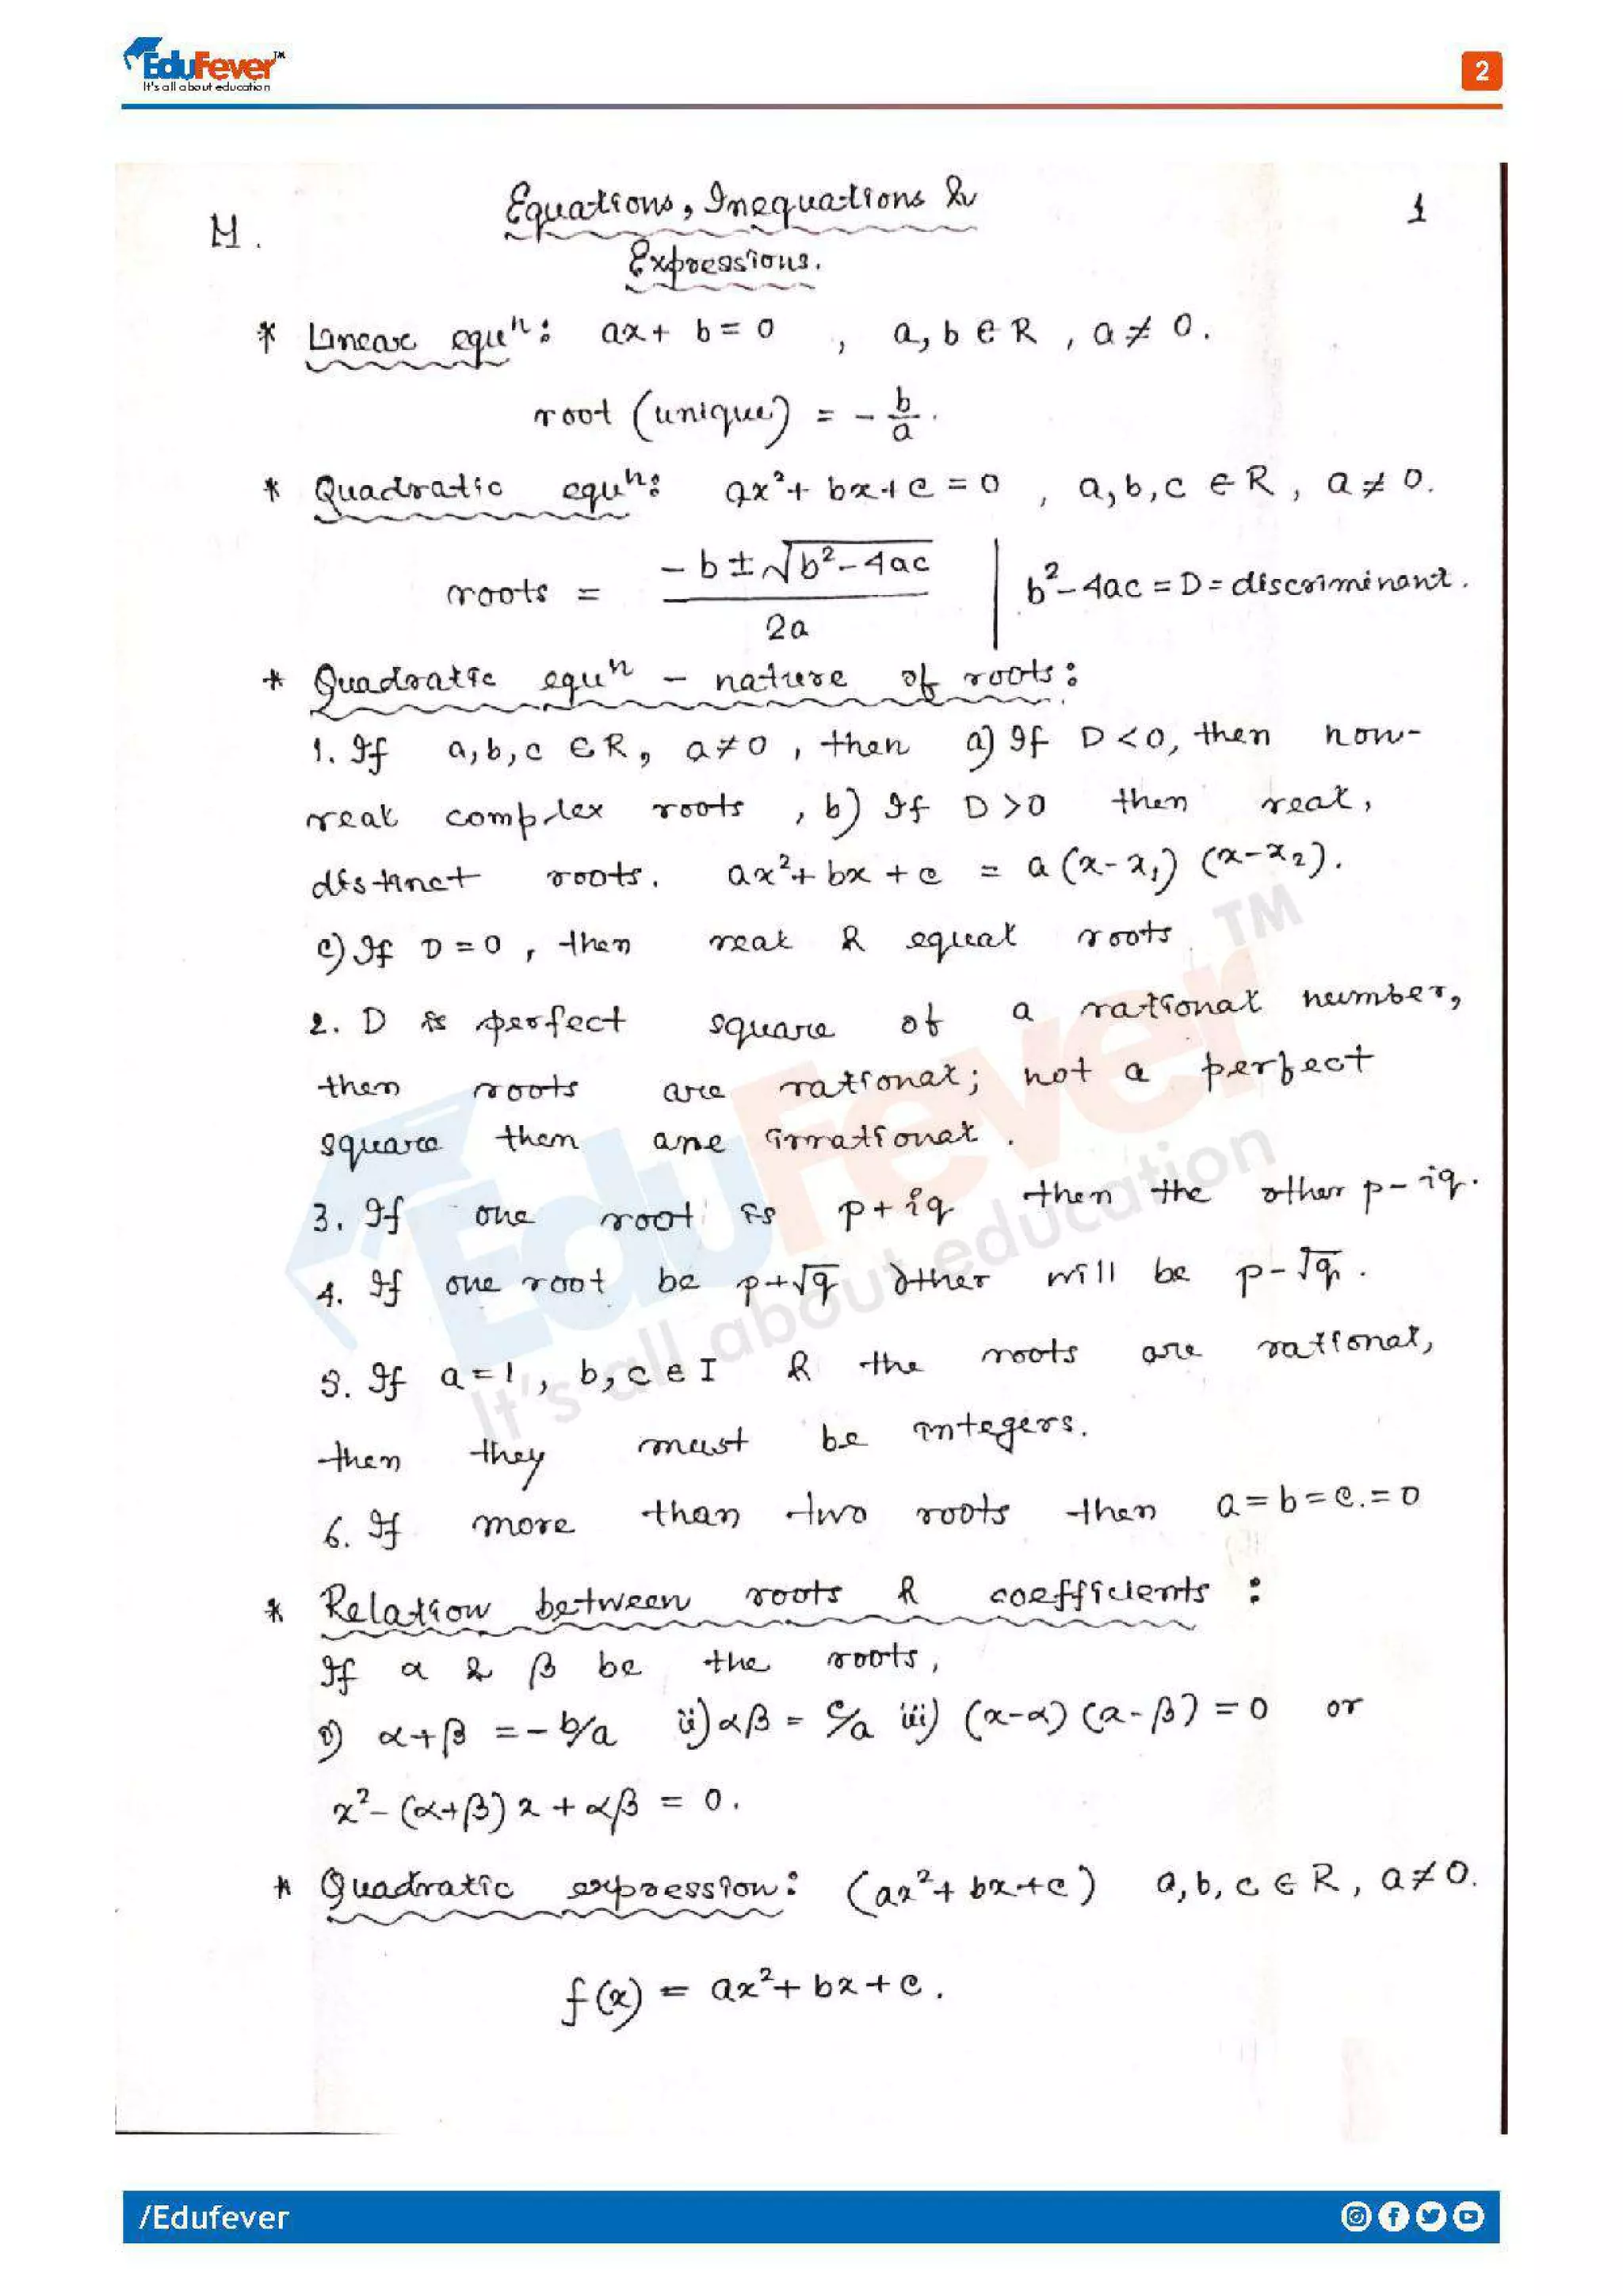 EduFever™
It's all about education
2
M.
Equations, Inequations &
Expressions.
1
* Linear equⁿ: ax + b = 0 , a, b ∈ R , a ≠ 0.
root (unique) = - b/a .
* Quadratic equⁿ: ax² + bx + c = 0 , a, b, c ∈ R , a ≠ 0.
roots = (-b ± √(b² - 4ac)) / 2a | b² - 4ac = D = discriminant .
* Quadratic equⁿ - nature of roots :
1. If a, b, c ∈ R, a ≠ 0 , then a) If D < 0, then non-
real complex roots , b) If D > 0 then real,
distinct roots. ax² + bx + c = a (x - x₁) (x - x₂).
c) If D = 0 , then real & equal roots
2. D is perfect square of a rational number,
then roots are rational; not a perfect
square then are irrational .
3. If one root is p + iq then the other p - iq.
4. If one root be p + √q other will be p - √q .
5. If a = 1 , b, c ∈ I & the roots are rational,
then they must be integers.
6. If more than two roots then a = b = c. = 0
* Relation between roots & coefficients :
If α & β be the roots ,
i) α + β = - b/a ii) αβ = c/a iii) (x - α) (x - β) = 0 or
x² - (α + β) x + αβ = 0 .
* Quadratic expression : (ax² + bx + c) a, b, c ∈ R , a ≠ 0.
f (x) = ax² + bx + c .
EduFever™
It's all about education
/Edufever